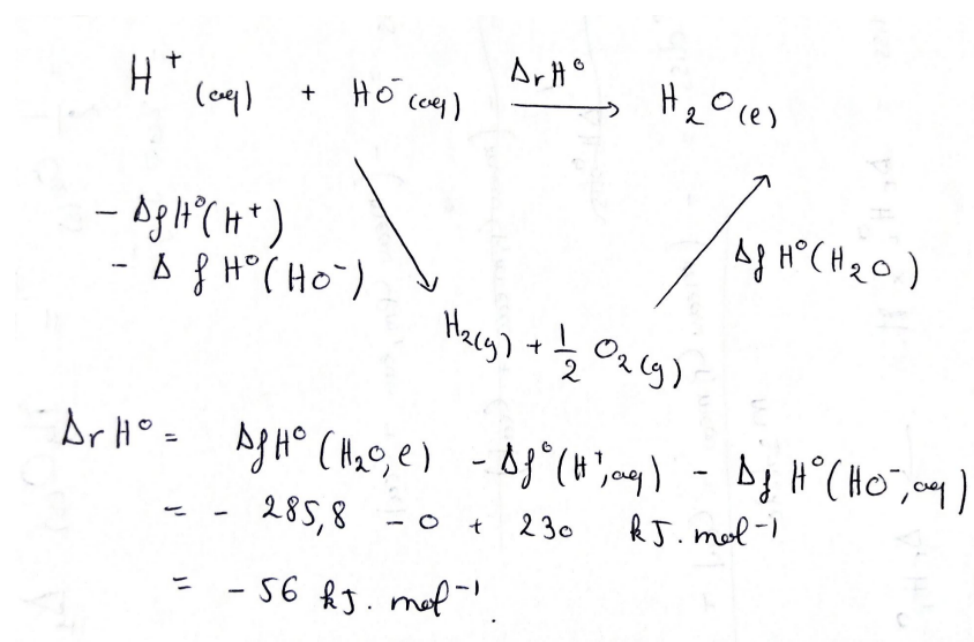 H⁺(aq) + HO⁻(aq) ⟶ H₂O(ℓ)
ΔrH°
- ΔfH°(H⁺)
- ΔfH°(HO⁻)
ΔfH°(H₂O)
H₂(g) + 1/2 O₂(g)
ΔrH° = ΔfH°(H₂O,ℓ) - Δf°(H⁺,aq) - ΔfH°(HO⁻,aq)
= - 285,8 - 0 + 230 kJ.mol⁻¹
= - 56 kJ.mol⁻¹.